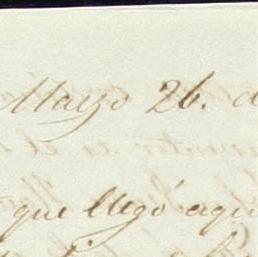 Marzo 26. d
que llegó aqui